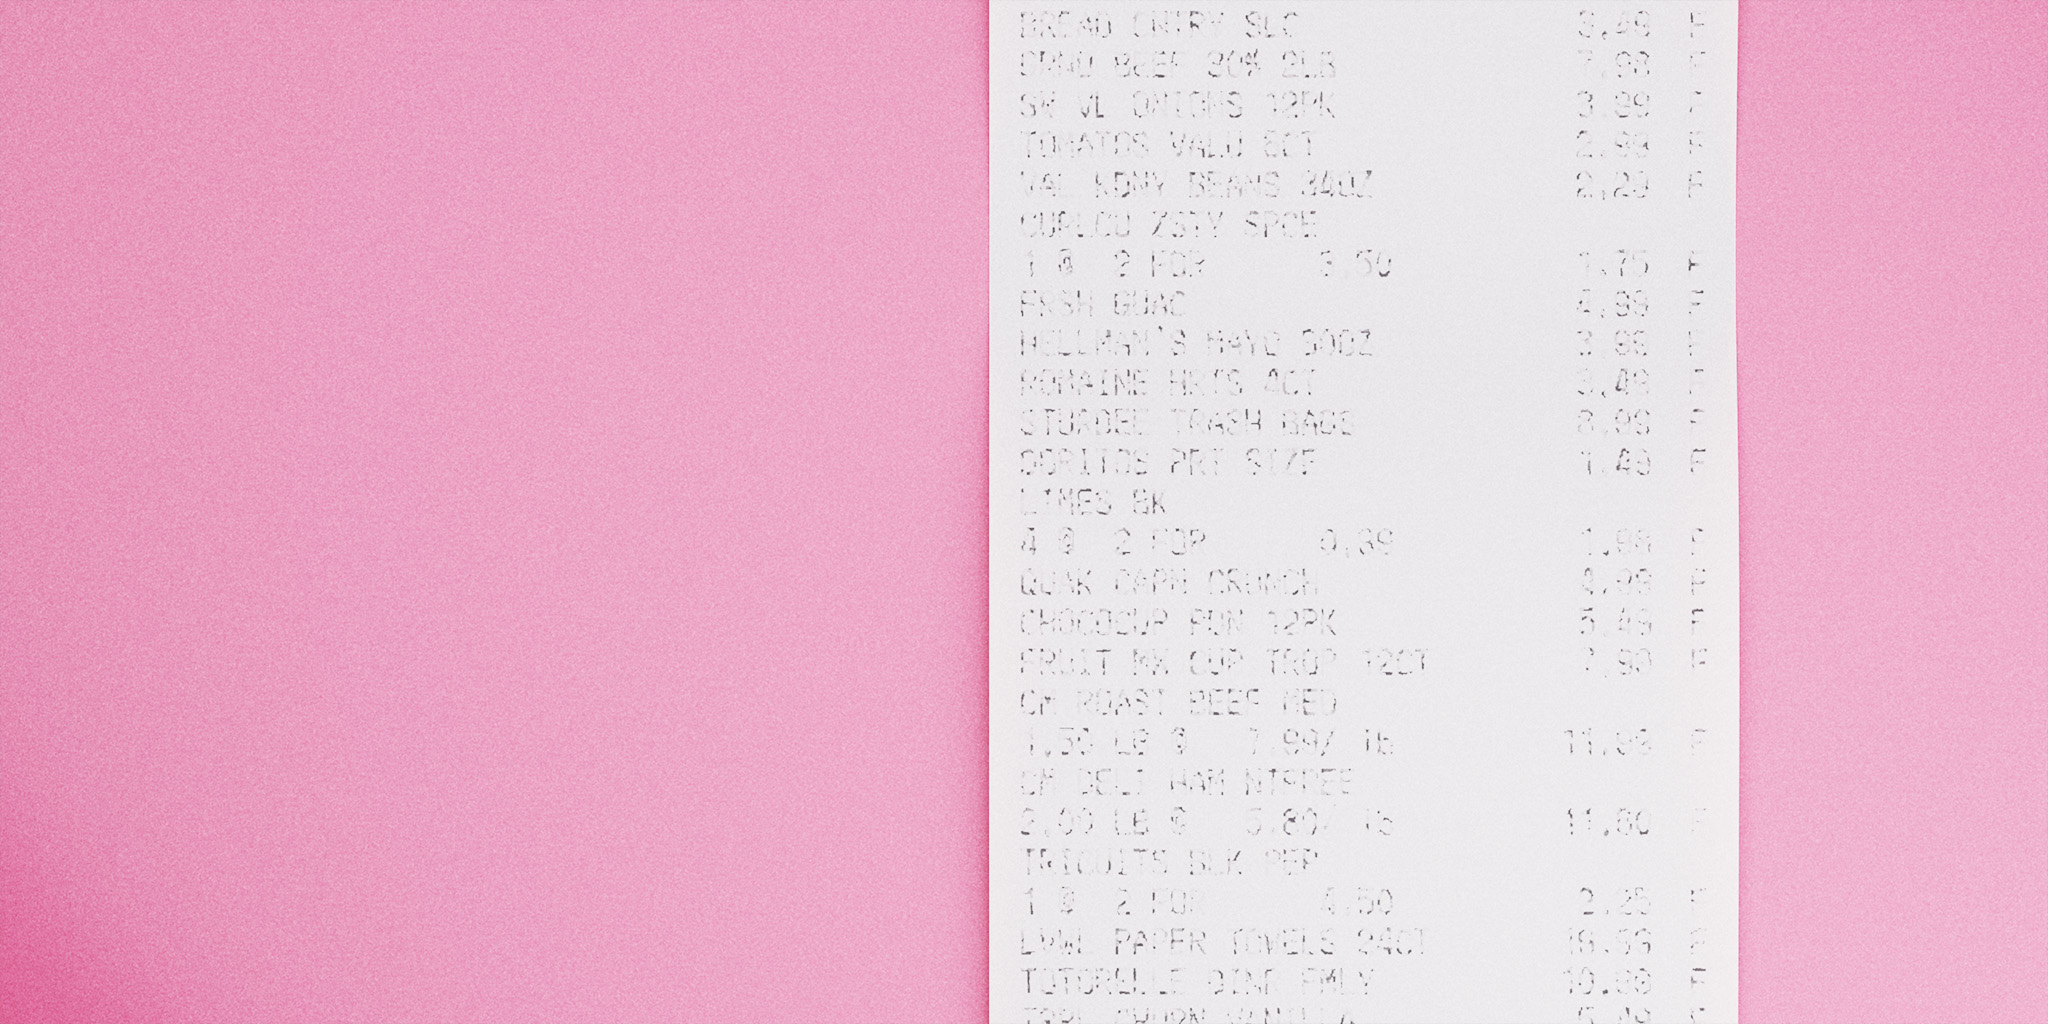 BREAD CNTRY SLC 3.49 F
GRND BEEF 80% 2LB 7.98 F
SM VL ONIONS 12PK 3.99 F
TOMATOS VALU 6CT 2.99 F
VAL KDNY BEANS 34OZ 2.29 F
ZSTY SPCE
1 @ 2 FOR 3.50 1.75 F
FRSH GUAC 4.99 F
HELLMAN'S MAYO 30OZ 3.99 F
ROMAINE HRTS 4CT 3.49 F
STURDEE TRASH BAGS 8.99 F
DORITOS PRT SIZE 1.49 F
LIMES BK
4 @ 2 FOR 0.99 1.98 F
QUAK CAPN CRUNCH 4.99 F
CHOCOCUP FUN 12PK 5.49 F
FRUIT MX CUP TROP 12CT F
ROAST BEEF MED
1.50 LB @ 7.99/ lb 11.99 F
DELI HAM NTFREE
2.00 LB @ 5.80/ lb 11.60 F
TRICUITS BLK PEP
1 @ 2 FOR 4.50 2.25 F
PAPER TOWELS 24CT F
FMLY F
VANILLA